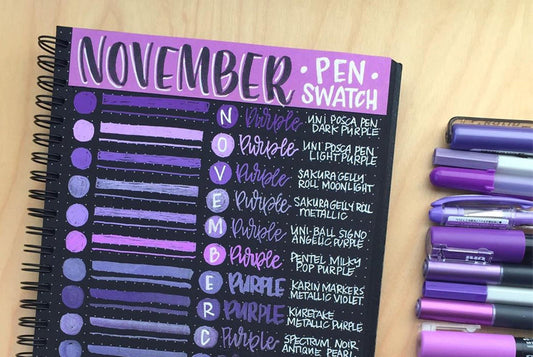 NOVEMBER
• PEN •
SWATCH
N Purple UNI POSCA PEN
DARK PURPLE
O Purple UNI POSCA PEN
LIGHT PURPLE
V Purple SAKURA GELLY
ROLL MOONLIGHT
E Purple SAKURA GELLY ROLL
METALLIC
M Purple UNI-BALL SIGNO
ANGELIC PURPLE
B Purple PENTEL MILKY
POP PURPLE
E PURPLE KARIN MARKERS
METALLIC VIOLET
R PURPLE KURETAKE
METALLIC PURPLE
C Purple SPECTRUM NOIR
ANTIQUE PEARL